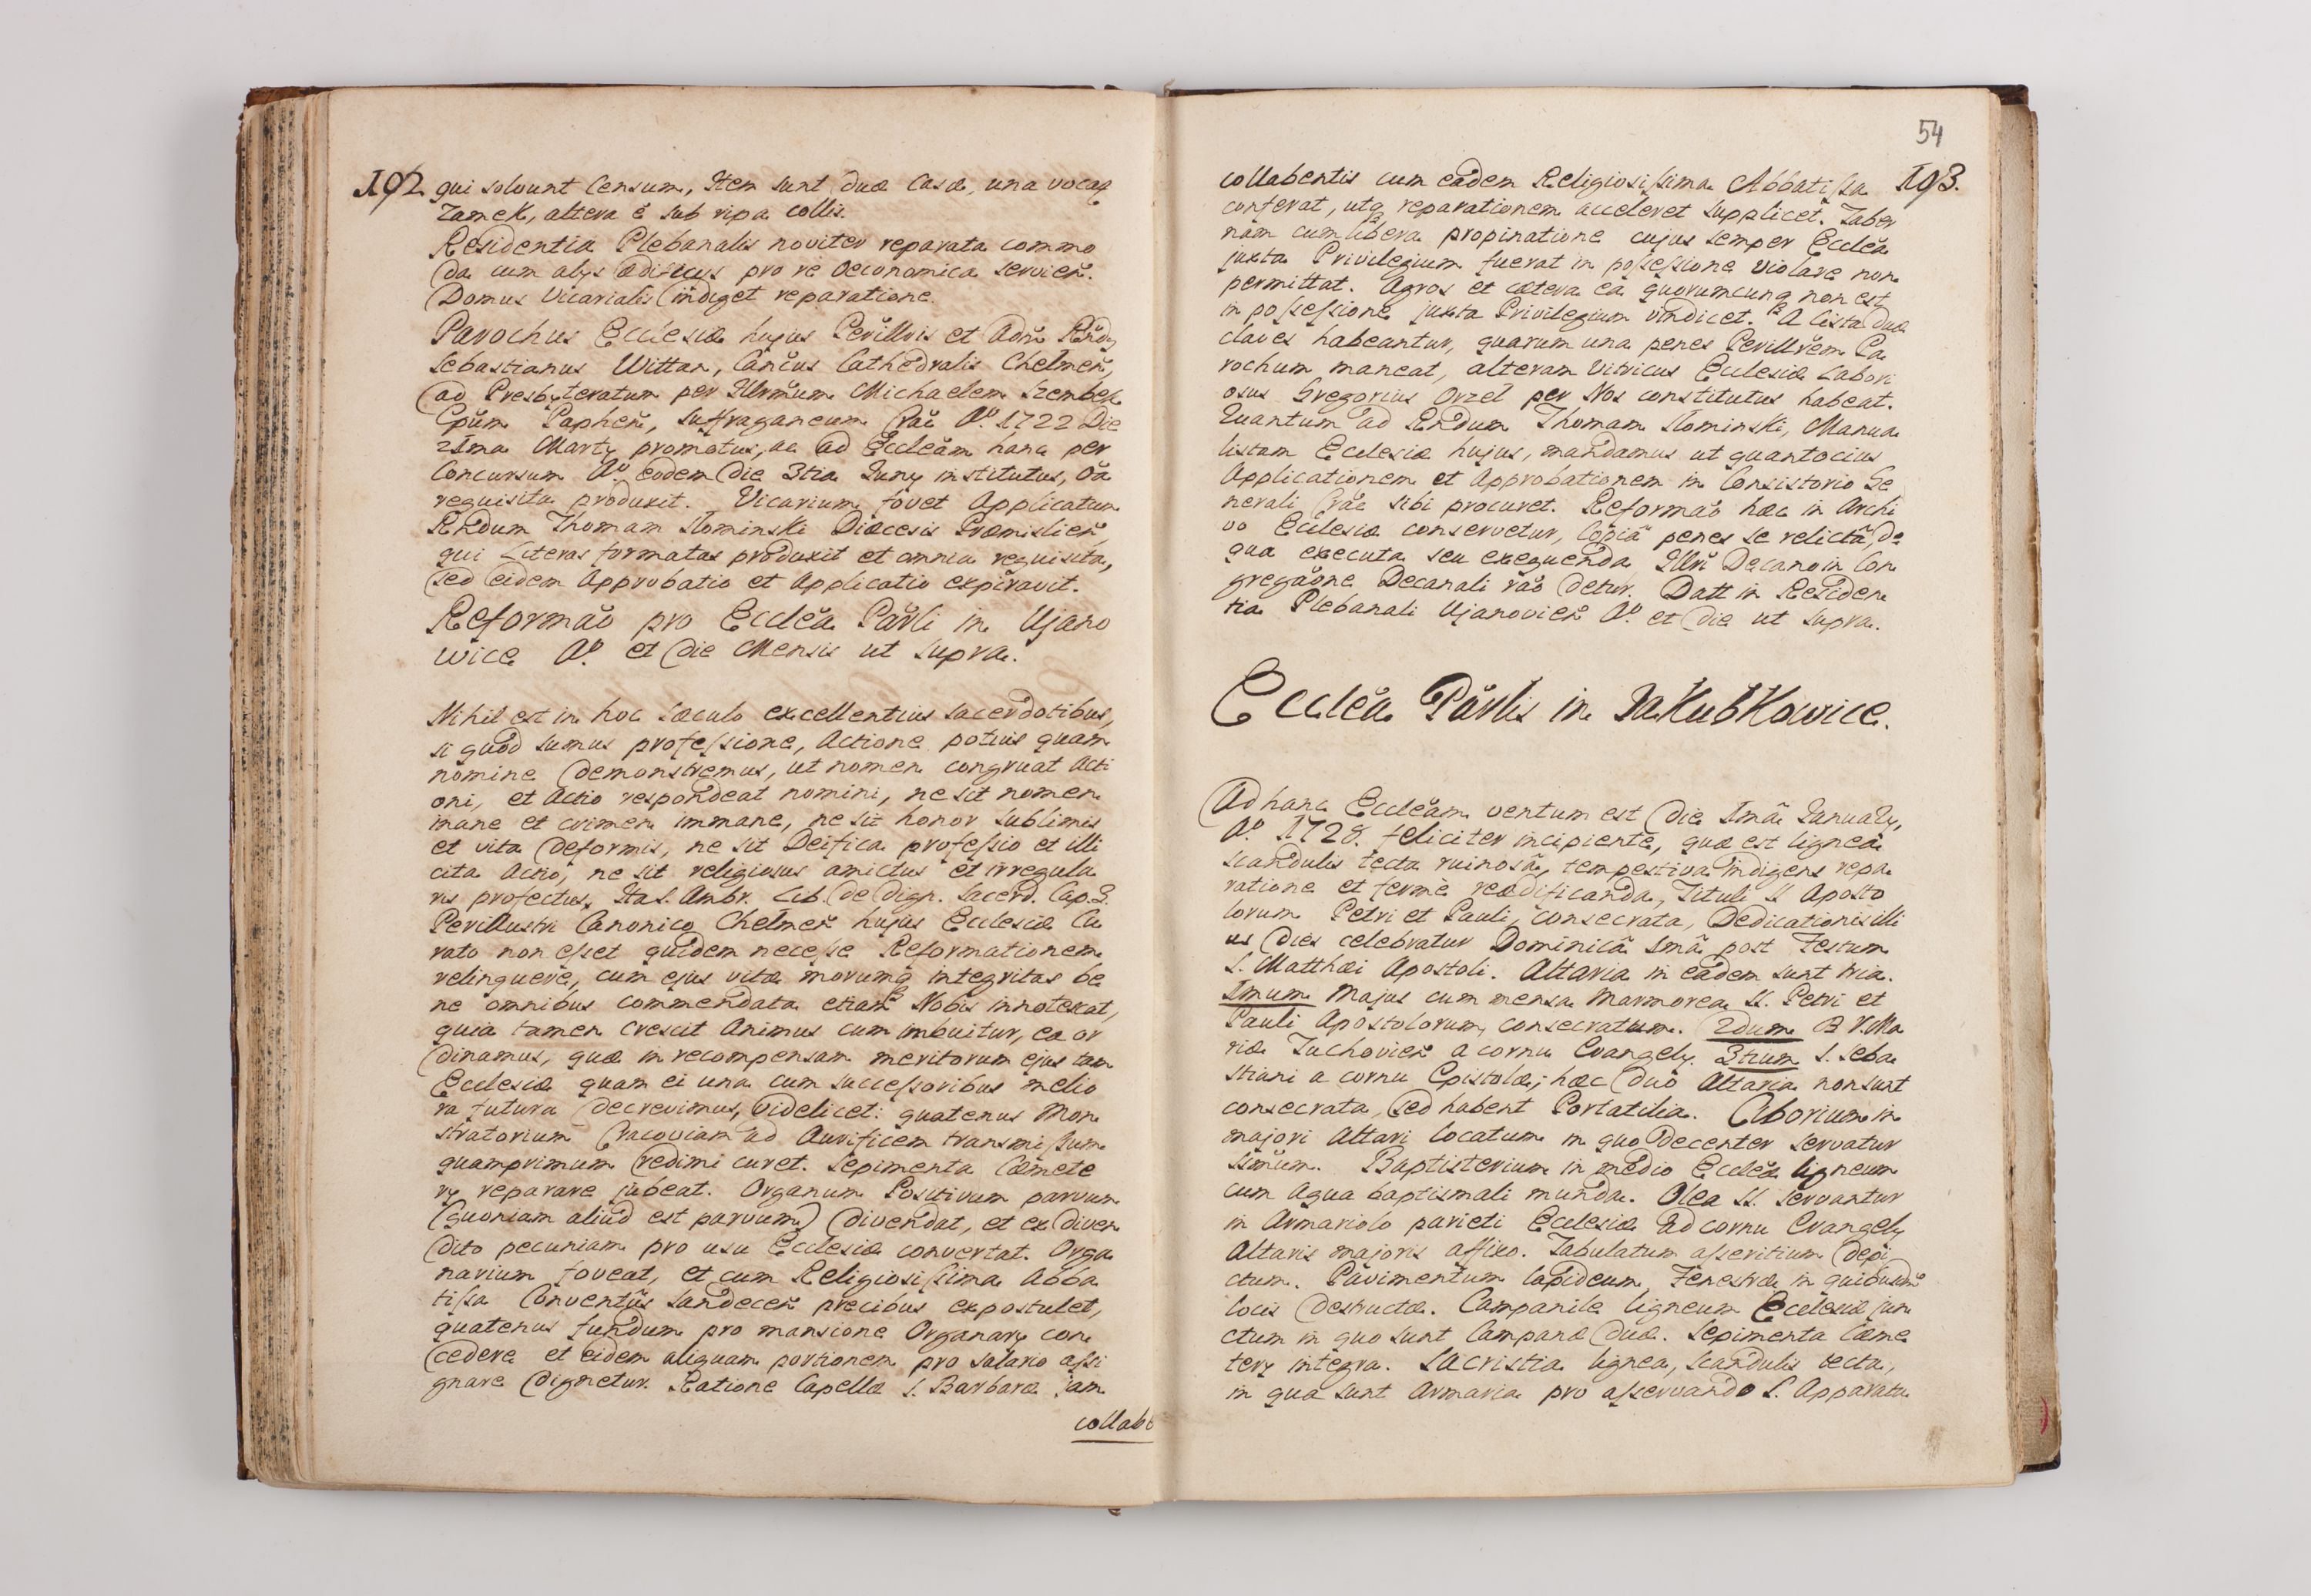 192 qui solvunt Censum, Item sunt duæ Casæ, una vocat
Zamek, altera è sub ripa collis.
Residentia Plebanalis noviter reparata commo
da cum alÿs ædificÿs pro re Oeconomica servien̄.
Domus Vicarialis indiget reparatione.
Parochus Ecclesiæ hujus Perillris et Adm̄ Rn̄dus
Sebastianus Wittan, Can̄cus Cathedralis Chelmen̄,
ad Presbyteratum per Illrmūm Michaelem Szembek
Epūm Paphen̄, Suffraganeum Crac̄ Aº. 1722 Die
21ma Martÿ promotus, ac ad Ecclēam hanc per
Concursum Aº. eodem Die 3tia Junÿ institutus, oā
requisita produxit. Vicarium fovet Applicatum
Rn̄dum Thomam Slominski Diæcesis Præmislien̄,
qui Literas formatas produxit et omnia requisita,
sed eidem Approbatio et Applicatio expiravit.
Reformaō pro Ecclēa Parl̄i in Ujano
wice Aº. et Die Mensis ut supra.
Nihil est in hoc sæculo excellentius sacerdotibus,
si quod sumus professione, Actione potius quam
nomine demonstremus, ut nomen congruat Acti
oni, et Actio respondeat nomini, ne sit nomen
inane et crimen immane, ne sit honor sublimis
et vita deformis, ne sit Deifica professio et illi
cita Actio, ne sit religiosus amictus et irregula
ris profectus. Ita S. Ambr. Lib. de Dign. Sacerd. Cap. 3.
Perillustri Canonico Chelmen̄ hujus Ecclesiæ Cu
rato non esset quidem necesse Reformationem
relinquere, cum ejus vitæ morumq integritas be
ne omnibus commendata etiam Nobis innotexat,
quia tamen crescit Animus cum imbuitur, ea or
dinamus, quæ in recompensam meritorum ejus tam
Ecclesiæ quam ei una cum successoribus melio
ra futura decrevimus, videlicet: quatenus Mon
stratorium Cracoviam ad Aurificem transmissum
quamprimum redimi curet. Sepimenta Cæmete
rÿ reparare jubeat. Organum Positivum parvum
(quoniam aliud est parvum) divendat, et ex diven
dito pecuniam pro usu Ecclesiæ convertat. Orga
narium foveat, et cum Religiosissima Abba
tissa Conventûs Sandecen̄ precibus expostulet,
quatenus fundum pro mansione Organarÿ con
cedere et eidem aliquam portionem pro salario assi
gnare dignetur. Ratione Capellæ S. Barbaræ jam
collab
54
193.
collabentis cum eadem Religiosissima Abbatissa
conferat, utq reparationem acceleret supplicet. Taber
nam cum libera propinatione cujus semper Ecclēa
juxta Privilegium fuerat in possessione violare non
permittat. Agros et cætera ea quorumcunq non est
in possessione juxta Privilegium vindicet. A Cista duæ
claves habeantur, quarum una penes Perillrēm Pa
rochum maneat, alteram Vitricus Ecclesiæ Labori
osus Gregorius Orzeł per Nos constitutus habeat.
Quantum ad Rn̄dum Thomam Slominski, Manua
listam Ecclesiæ hujus, mandamus ut quantocius
Applicationem et Approbationem in Consistorio Ge
nerali Crac̄ sibi procuret. Reformaō hæc in Archi
vo Ecclesiæ conservetur, Copiâ penes se relictâ, de
qua executa seu exequenda Illri Decano in Con
gregaōne Decanali raō detur. Datt in Residen
tia Plebanali Ujanovien̄ Aº. et Die ut supra.
Ecclēa Parl̄is in Jakubkowice.
Ad hanc Ecclēam ventum est Die 1mâ Januarÿ,
Aº 1728. feliciter incipiente, quæ est lignea
scandulis tecta ruinosâ, tempestiva indigens repa
ratione et fermè reædificanda, Tituli SS Aposto
lorum Petri et Pauli, consecrata, Dedicationis illi
us dies celebratur Dominicâ 1mâ post Festum
S. Matthæi Apostoli. Altaria in eadem sunt tria.
1mum Majus cum mensa Marmorea SS. Petri et
Pauli Apostolorum, consecratum. 2dum B V. Ma
riæ Tuchovien̄ a cornu Evangelÿ. 3tium S. Seba
stiani a cornu Epistolæ; hæc duo Altaria non sunt
consecrata, sed habent Portatilia. Ciborium in
majori Altari locatum in quo decenter servatur
SSmūm. Baptisterium in medio Ecclēæ ligneum
cum Aqua baptismali munda. Olea SS. servantur
in Armariolo parieti Ecclesiæ ad cornu Evangelÿ
Altaris majoris affixo. Tabulatum asseritium depi
ctum. Pavimentum lapideum, Fenestræ in quibusdm̄
locis destructæ. Campanile ligneum Ecclesiæ jun
ctum in quo sunt Campanæ duæ. Sepimenta Cæme
terÿ integra. Sacristia lignea, scandulis tecta,
in qua sunt Armaria pro asservando S. Apparatu